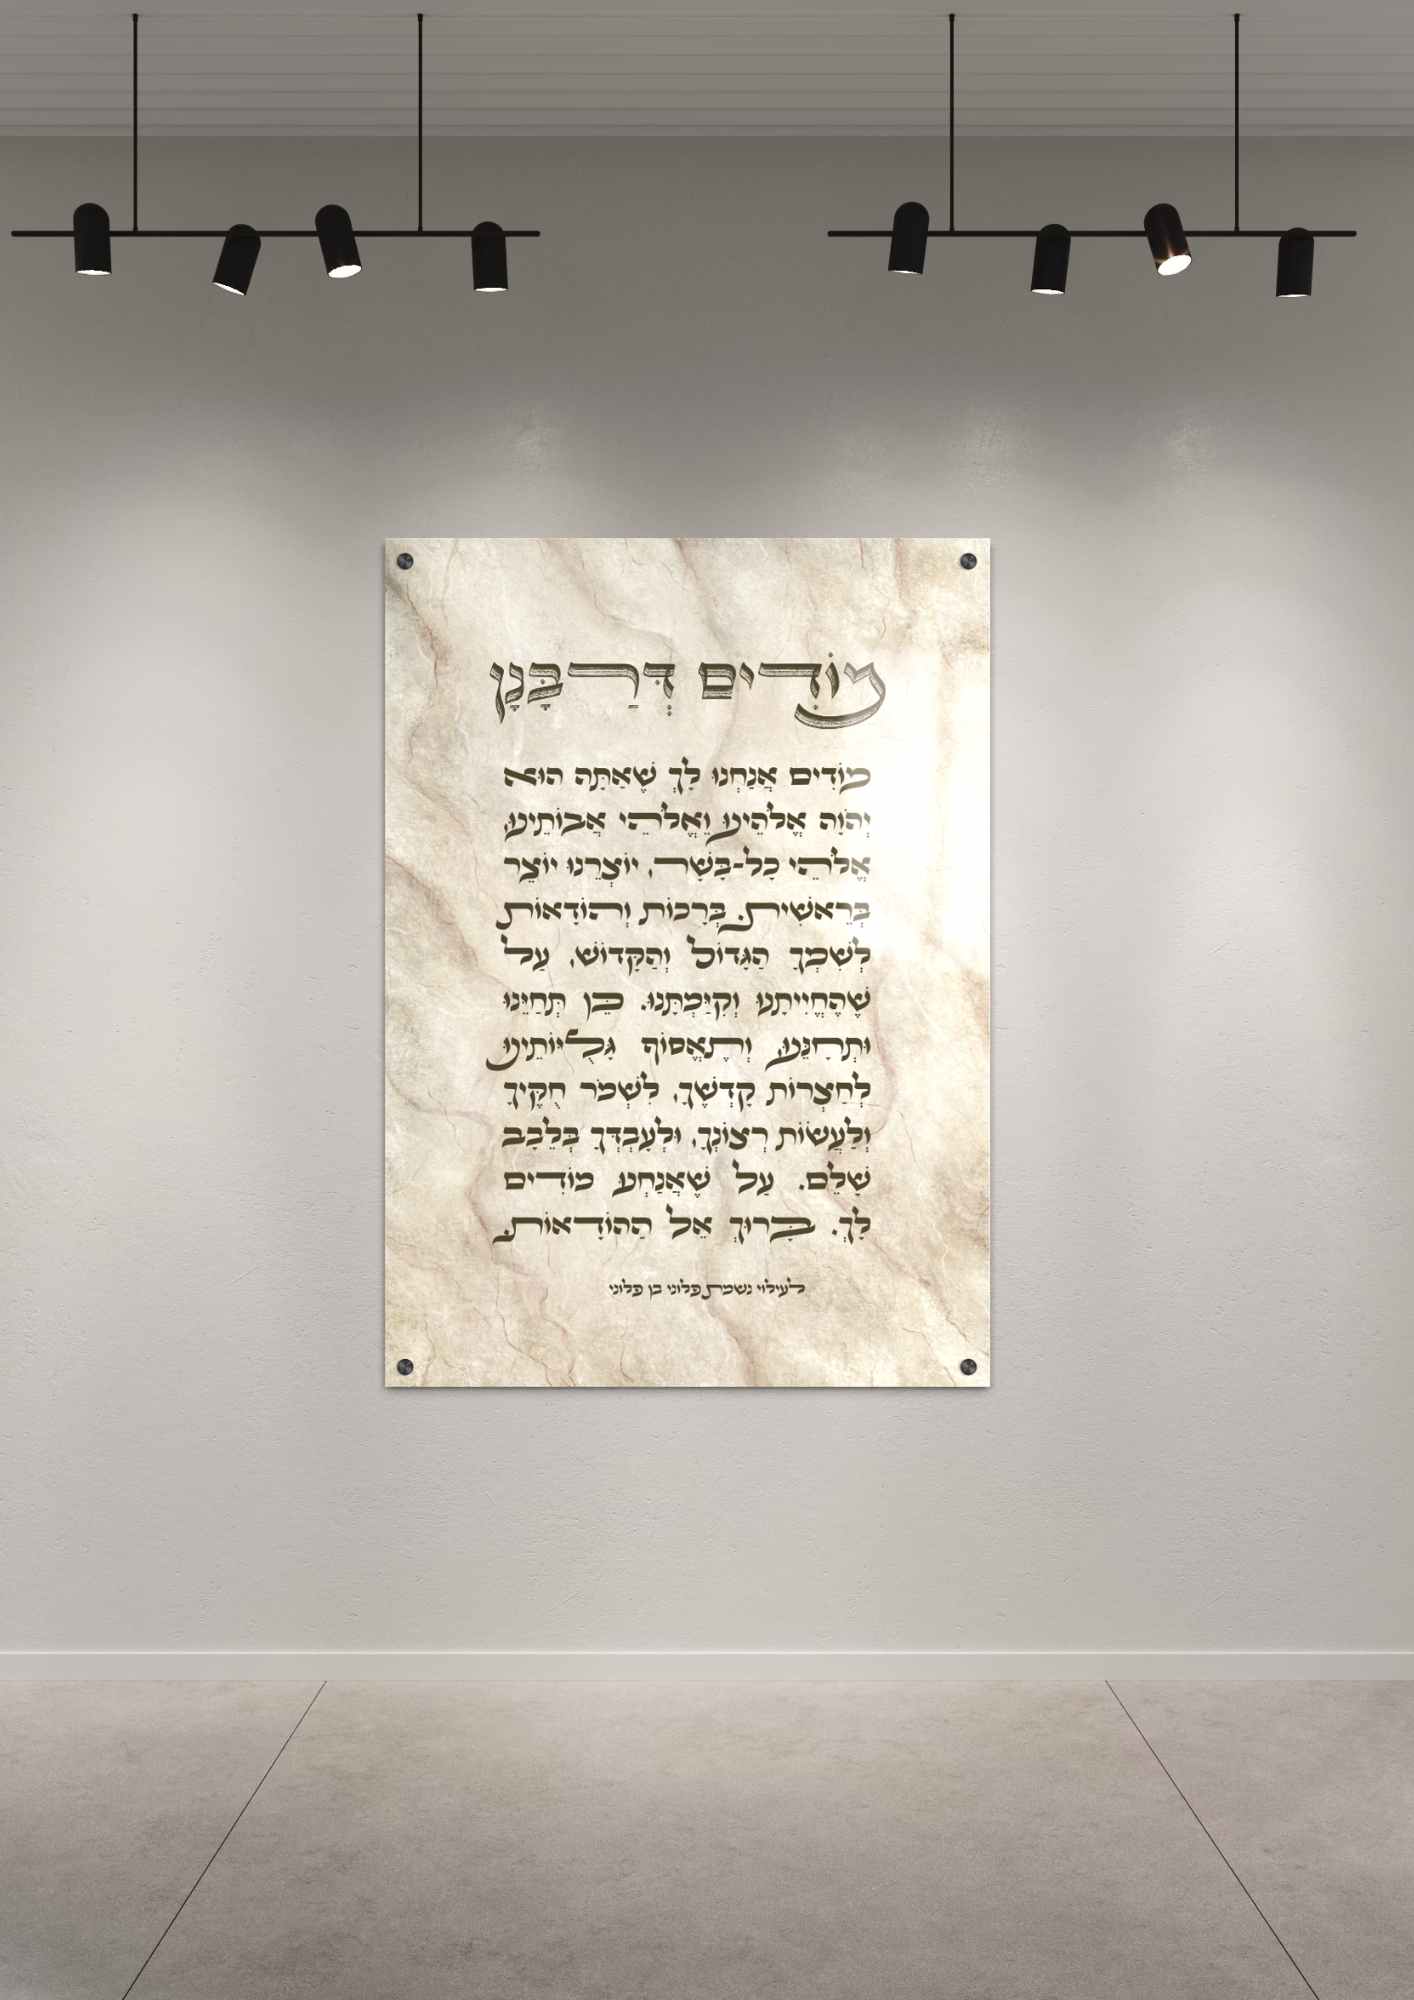 מוֹדִים דְּרַבָּנָן
מוֹדִים אֲנַחְנוּ לָךְ שֶׁאַתָּה הוּא
יְהֹוָה אֱלֹהֵינוּ וֵאֱלֹהֵי אֲבוֹתֵינוּ,
אֱלֹהֵי כָל-בָּשָׂר, יוֹצְרֵנוּ יוֹצֵר
בְּרֵאשִׁית. בְּרָכוֹת וְהוֹדָאוֹת
לְשִׁמְךָ הַגָּדוֹל וְהַקָּדוֹשׁ, עַל
שֶׁהֶחֱיִיתָנוּ וְקִיַּמְתָּנוּ. כֵּן תְּחַיֵּנוּ
וּתְחָנֵּנוּ, וְתֶאֱסוֹף גָּלֻיּוֹתֵינוּ
לְחַצְרוֹת קָדְשֶׁךָ, לִשְׁמֹר חֻקֶּיךָ
וְלַעֲשׂוֹת רְצוֹנְךָ, וּלְעָבְדְּךָ בְּלֵבָב
שָׁלֵם. עַל שֶׁאֲנַחְנוּ מוֹדִים
לָךְ. בָּרוּךְ אֵל הַהוֹדָאוֹת.
לעילוי נשמת פלוני בן פלוני